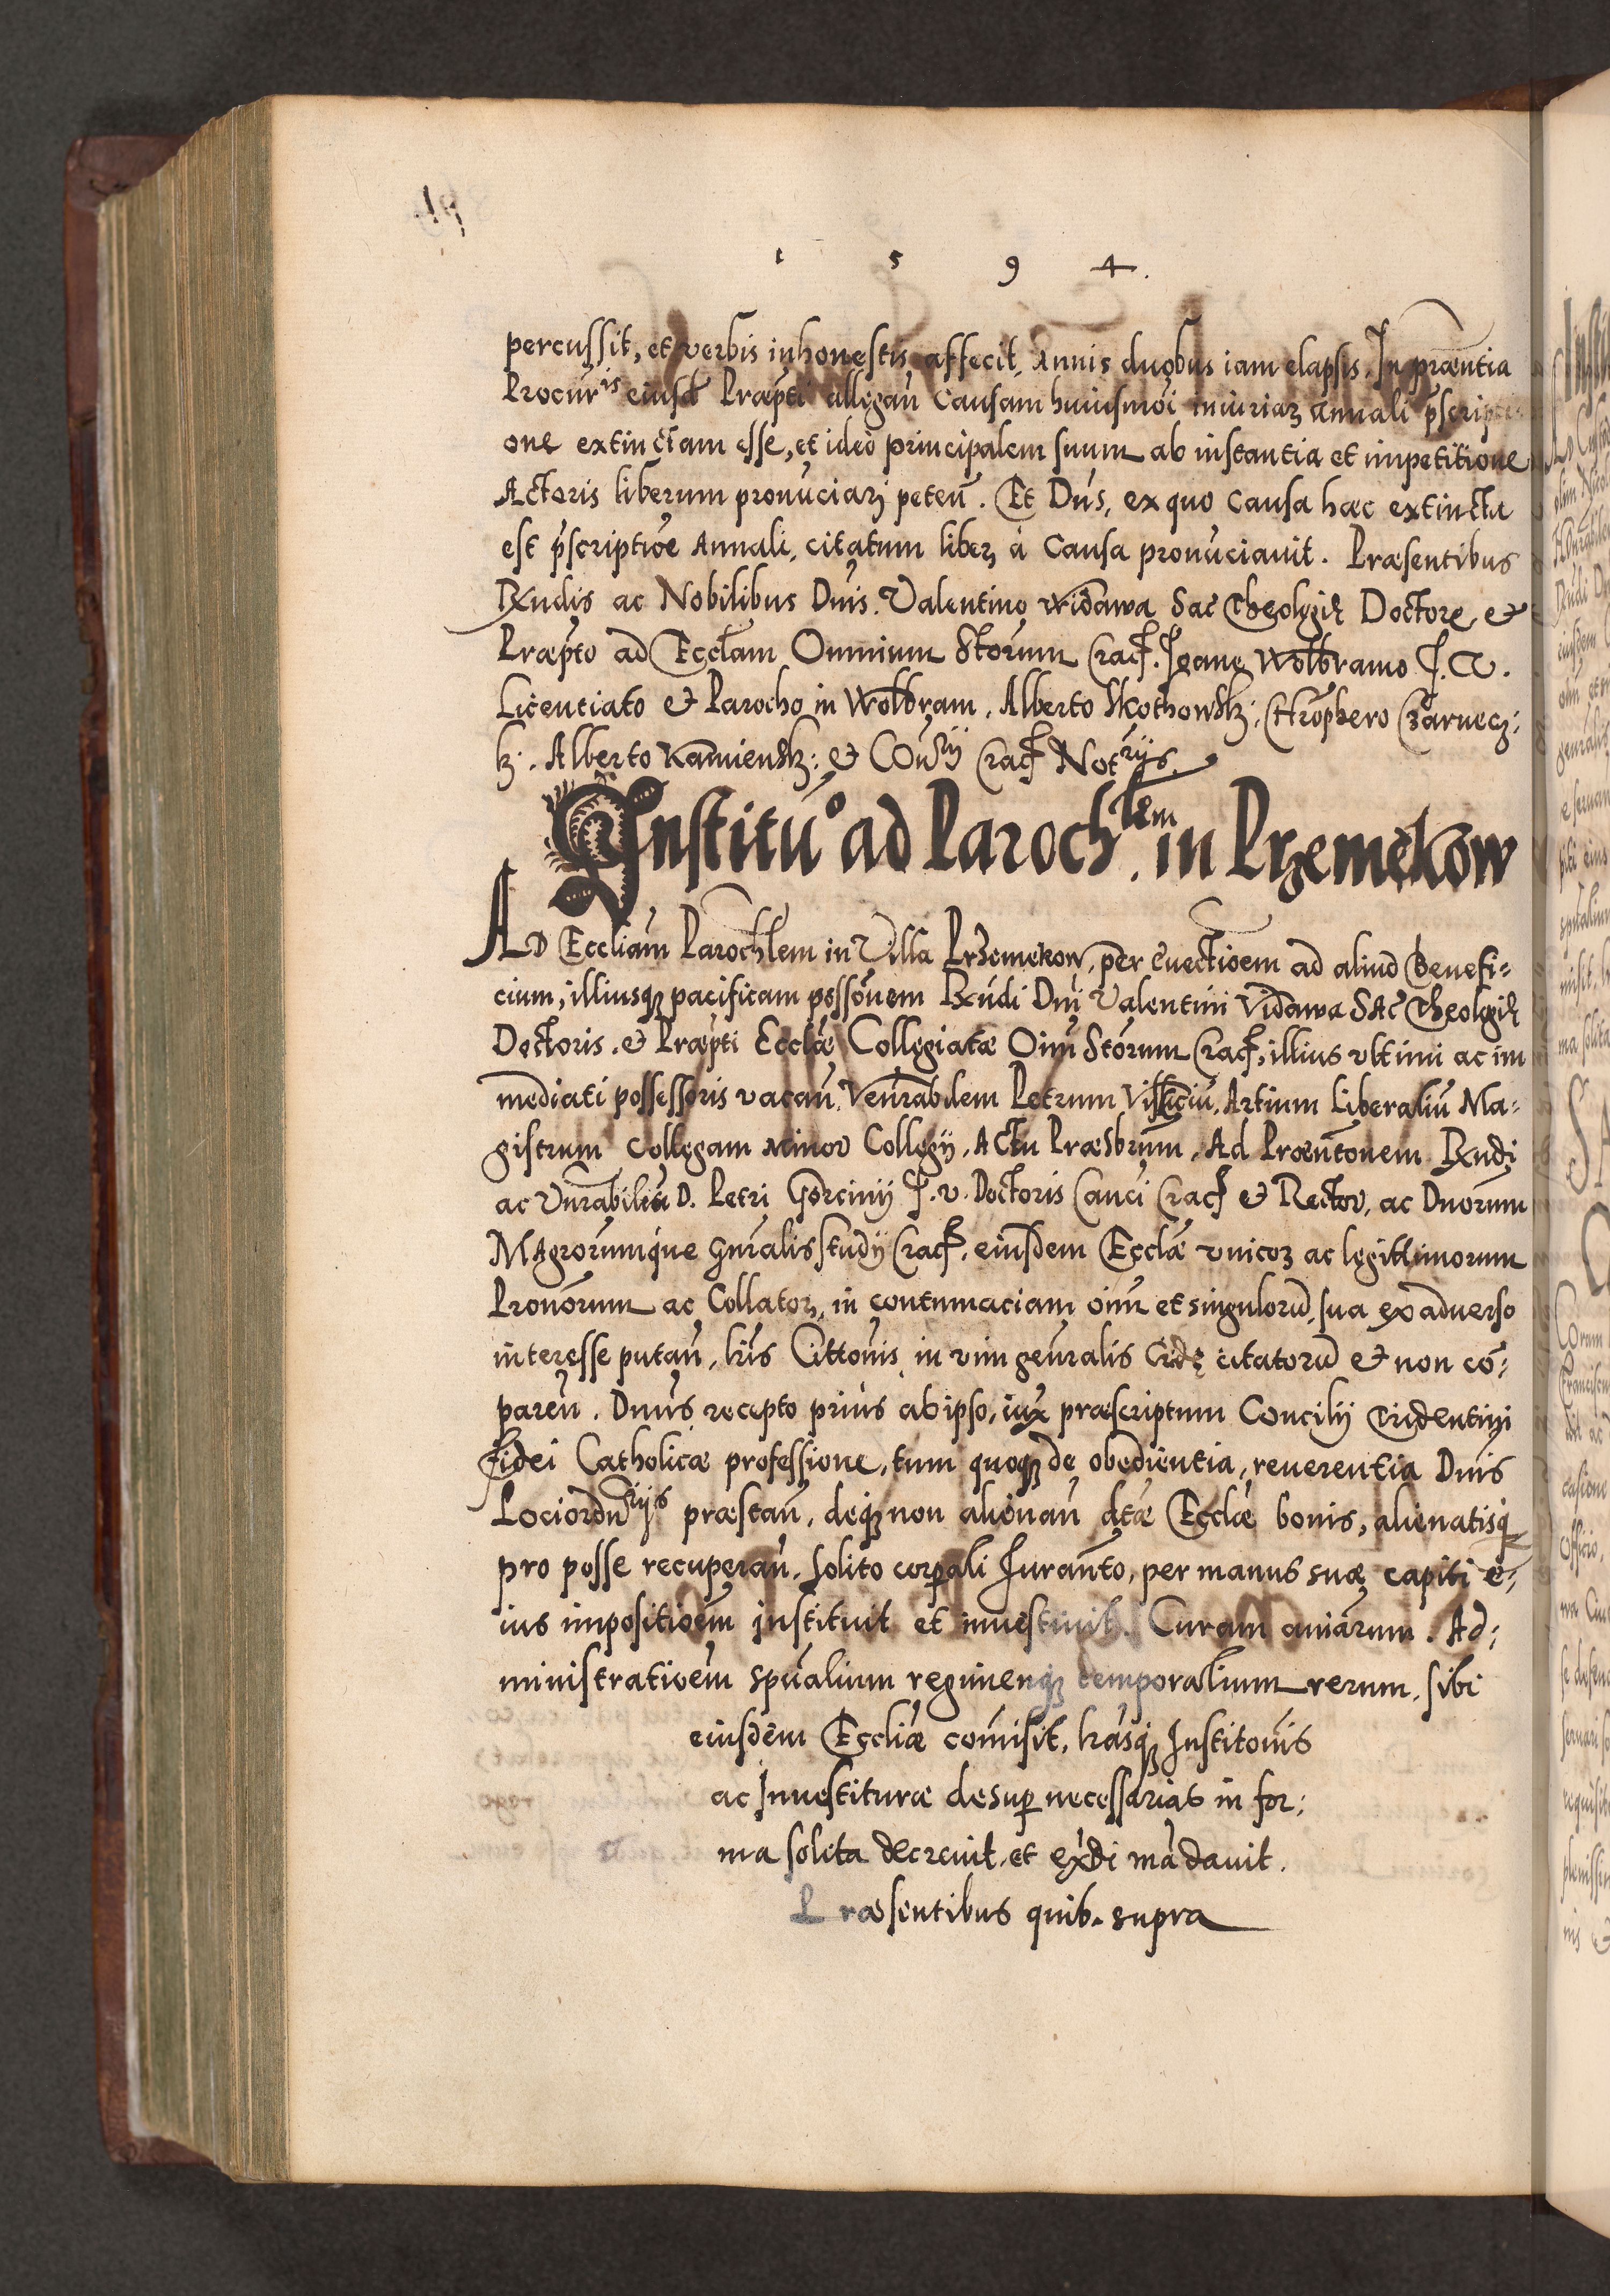 1 5 9 4.
percussit, et verbis inhonestis affecit, Annis duobus iam elapsis. In præntia
Procur̃is eiusd̃ Præpti allegañ Causam huiusmõi iniuriaꝝ annali p̃scripti
one extinctam esse, et ideo principalem suum ab instantia et impetitione
Actoris liberum pronũciari peteñ. Et Dñs, ex quo Causa hæc extincta
est p̃scriptiõe Annali, citatum liberꝝ à Causa pronũciauit. Præsentibus
Rndis ac Nobilibus Dnis. Valentino Widawa Sac Theologiæ Doctore et
Præpto ad Ecclam Omnium Storum Crac. Joane Wolbramo J. V.
Licentiato et Parocho in Wolbram, Alberto Skothowsk: Chrõphero Czarnecz:
k: Alberto Kamiensk: et Coñrij Crac Notrijs.
Institũo ad Parochlem. in Przemękow
AD Eccliam Parochlem in Villa Przemekow, per euectioem ad aliud Benefi=
cium, illiusqꝫ pacificam possõnem Rñdi Dñi Valentini Vidawa SAC Theologiæ
Doctoris. et Præpti Ecclæ Collegiatæ Oiñ Storum Crac, illius vltimi ac im
mediati possessoris vacañ. Venrabilem Petrum Artium Liberaliũ Ma=
gistrum Collegam Minor Collegij, Actu Præsbrum, Ad Præntõnem Rndi
ac Vnrabiliũ D. Petri Gorcinij J. v. Doctoris Canci Crac et Rector, ac Dnorum
MAgrorumque gnralis studij Crac. eiusdem Ecclæ vnicoꝝ ac legittimorum
Pronõrum ac Collatoꝝ, in contumaciam oiñ et singulorũ, sua ex aduerso
interesse putañ, lris Cittonis in vim genralis Cridę citatorũ et non cõ=
pareñ. Dnus recepto prius ab ipso, iux præscriptum Concilij Tridentini
fidei Catholicæ professione, tum quoqꝫ de obedientia, reuerentia Dnis
Lociordnrijs præstañ, deqꝫ non alienañ dtæ Ecclæ bonis, alienatisqꝫ
pro posse recuperañ. solito corporali Juranto, per manus suæ capiti e=
ius impositioẽm instituit et inuestiuit. Curam aniarum. Ad=
ministratioẽm spũalium regimenqꝫ temporalium rerum, sibi
eiusdem Eccliæ comisit, lrasqꝫ Institonis
ac Inuestituræ desuper necessarias in for=
ma solita decreuit, et exp̃di mãdauit.
Præsentibus quib. supra